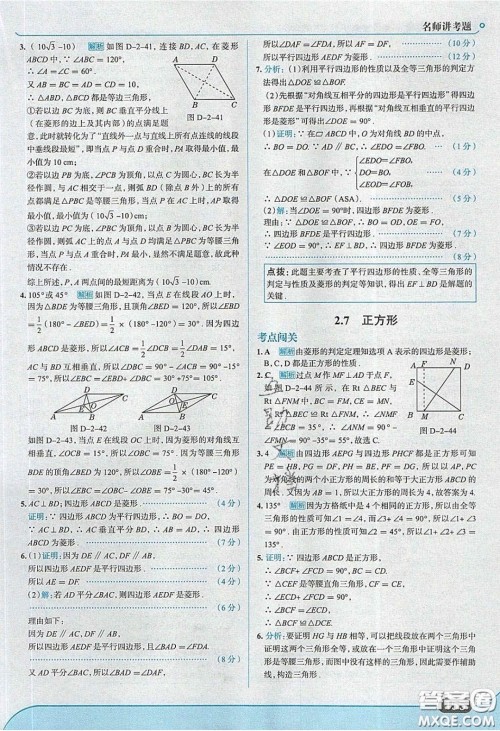 名师讲考题
3. (10√3-10) 解析 如图 D-2-41, 连接 BD, AC, 在菱形
ABCD 中, ∵ ∠ABC = 120°,
∴ ∠A = ∠C = 60°.
又 AB = BC = AD = CD = 10,
∴ △ABD, △BCD 都是等边三角形,
①若以边 BC 为底, 则 BC 垂直平分线上
(在菱形的边上及其内部)的点满足题
意, 此时就转化为了“直线外一点与直线上所有点连线的线段
中垂线段最短”, 即当点 P 与点 D 重合时, PA 取得最小值, 最
小值为 10 cm;
②若以边 PB 为底, ∠PCB 为顶角, 以点 C 为圆心, BC 长为半
径作圆, 与 AC 相交于一点, 则弧 BD (除点 B 外)上的所有
点都满足△PBC 是等腰三角形, 当点 P 在 AC 上时, AP 取得
最小值, 最小值为(10√3-10);
③若以边 PC 为底, ∠PBC 为顶角, 以点 B 为圆心, BC 长为半
径作圆, 则弧 AC 上的点 A 与点 D 均满足△PBC 为等腰三角
形, 当点 P 与点 A 重合时, PA 最小, 显然不满足题意, 故此种
情况不存在.
综上所述, P, A 两点间的最短距离为(10√3-10) cm.
图 D-2-41
4. 105° 或 45° 解析 如图 D-2-42, 当点 E 在线段 AO 上时,
因为△BDE 为等腰三角形, 且顶角∠BED = 120°, 所以∠EBD
= 1/2 (180° - ∠BED) = 1/2 × (180° - 120°) = 30°. 因为四边
形 ABCD 是菱形, 所以∠ACB = 1/2 ∠DCB = 1/2 ∠DAB = 15°,
AC 与 BD 互相垂直, 所以∠OBC = 90° - ∠ACB = 90° - 15°
= 75°. 所以∠EBC = ∠EBD + ∠OBC = 30° + 75° = 105°.
图 D-2-42
图 D-2-43
如图 D-2-43, 当点 E 在线段 OC 上时, 因为菱形的对角线互
相垂直, 所以∠OBC = 75°. 因为当点 E 在线段 OC 上时, 等腰三角形
BDE 的顶角∠BED 为 120°, 所以∠OBE = 1/2 × (180° - 120°)
= 30°, 所以∠EBC = ∠OBC - ∠OBE = 75° - 30° = 45°.
5. AC⊥BD; 四边形 ABCD 是菱形. (4 分)
证明: ∵ 四边形 ABCD 为平行四边形, ∴ BO = DO,
∵ AC⊥BD, ∴ AC 垂直平分 BD, ∴ AB = AD, ∴ 四边形
ABCD 为菱形. (7 分)
6. (1)证明: 因为 DE∥AC, DF∥AB,
所以四边形 AEDF 是平行四边形. (2 分)
所以 AE = DF. (4 分)
(2)解: 若 AD 平分∠BAC, 则四边形 AEDF 是菱形.
(6 分)
理由如下:
因为 DE∥AC, DF∥AB,
所以四边形 AEDF 是平行四边形, 且∠BAD = ∠FDA.
(8 分)
又 AD 平分∠BAC, 所以∠BAD = ∠DAF,
所以∠DAF = ∠FDA, 所以 AF = DF, (10 分)
所以平行四边形 AEDF 为菱形. (12 分)
7. 分析: (1)利用平行四边形的性质以及全等三角形的判定方
法得出△DOE≌△BOF.
(2)先根据“对角线互相平分的四边形是平行四边形”得四边
形 BFDE 是平行四边形, 再根据“对角线互相垂直的平行四
边形是菱形”可得出∠DOE = 90°.
(1)证明: ∵ 在▱ABCD 中, O 为对角线 BD 的中点,
∴ BO = DO. ∵ AD∥BC, ∴ ∠EDO = ∠FBO. (1 分)
在△DOE 和△BOF 中, ∵ {∠EDO=∠FBO, DO=BO, ∠EOD=∠FOB,
(4 分)
∴ △DOE≌△BOF (ASA). (5 分)
(2)解: 当∠DOE = 90°时, 四边形 BFDE 为菱形.
理由: ∵ △DOE≌△BOF, ∴ OE = OF, 又 BO = DO,
∴ 四边形 BFDE 是平行四边形. (7 分)
∵ ∠EOD = 90°, ∴ EF⊥BD, ∴ 四边形 BFDE 为菱形.
(8 分)
点拨: 此题主要考查了平行四边形的性质、全等三角形的
判定与性质及菱形的判定等知识, 得出 EF⊥BD 是解题的
关键.
2.7 正方形
考点闯关
1. A 解析 由菱形的判定定理知选项 A 表示的四边形是菱形;
B, C, D 都是正方形的性质.
2. C 解析 过点 M 作 MF⊥AD 于点 F.
如图 D-2-44 所示, 在 Rt △BEC 与
图 D-2-44
3. 4 解析 由四边形 AEPG 与四边形 PHCF 都是正方形可知
4. 135° 解析 因为方格纸中 4 个相同的正方形, 所以由全等
三角形的性质可知∠1 + ∠3 =
135°.
5. 证明: ∵ 四边形 ABCD 是正方形,
∴ ∠BCF + ∠FCD = 90°, BC = CD.
∵ △CEF 是等腰直角三角形, CF = CE,
∴ ∠BCF = ∠ECD,
∴ △BCF≌△DCE.
6. 分析: 要证明 HG 与 HB 相等, 可以把线段放在两个三角形中
证明这两个三角形全等, 或放在一个三角形中证明这个三角
形是等腰三角形, 而图中没有这样的三角形, 因此需要作辅助
线, 构造三角形.
答案圈
MXQE.COM